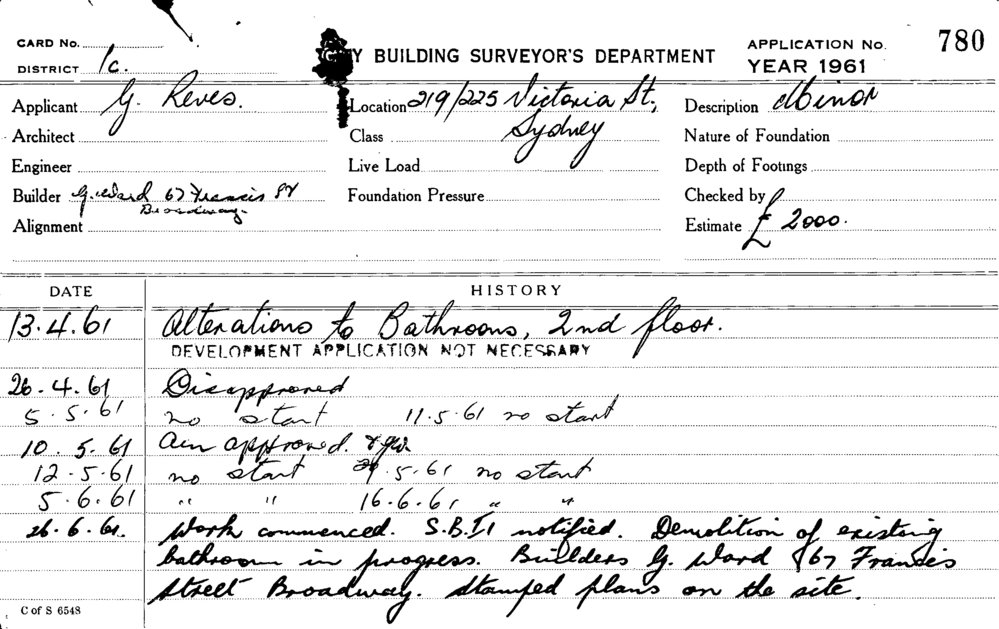 CARD No. CITY BUILDING SURVEYOR'S DEPARTMENT APPLICATION No. 780
DISTRICT 1c. YEAR 1961
Applicant G. Reves. Location 219/225 Victoria St, Description Minor
Architect Class Sydney Nature of Foundation
Engineer Live Load Depth of Footings
Builder G. Ward 67 Francis St Foundation Pressure Checked by
Broadway.
Alignment Estimate £ 2000.
DATE HISTORY
13.4.61 Alterations to Bathrooms, 2nd floor.
DEVELOPMENT APPLICATION NOT NECESSARY
26.4.61 Disapproved
5.5.61 no start 11.5.61 no start
10.5.61 approved.
12.5.61 no start 29.5.61 no start
5.6.61 " " 16.6.61 " "
26.6.61. Work commenced. S.B.I. notified. Demolition of existing
bathroom in progress. Builders G. Ward 67 Francis
Street Broadway. Stamped plans on the site.
C of S 6548